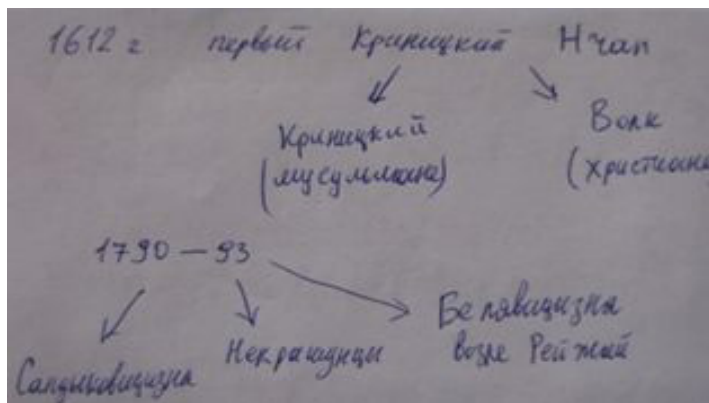 1612 г первый Криницкий Нчап
Криницкий
(мусульмана)
Волк
(христиане
1790 – 93
Салдыковщизна
Некрашунцы
Белявщизна
возле Рейжай